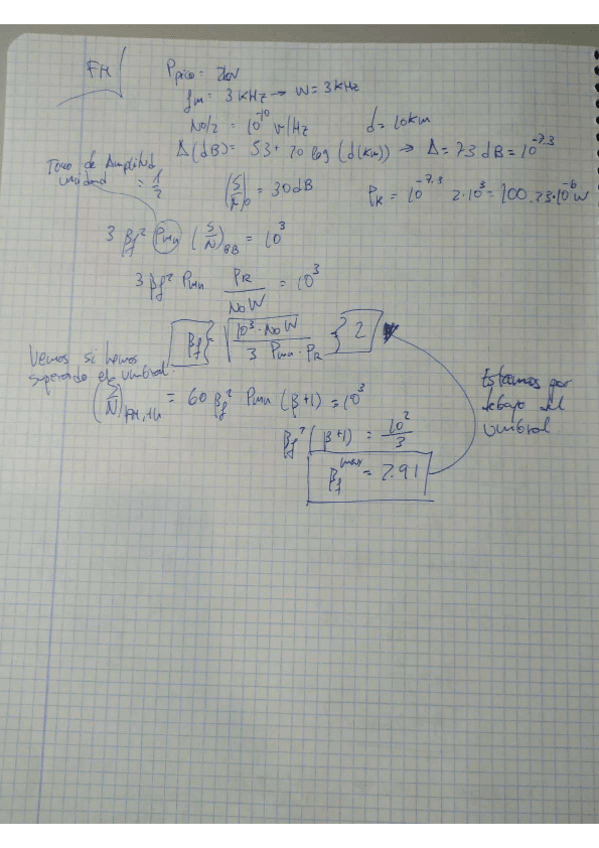 FM
Ppico = 2kW
fm = 3 KHz → W = 3 kHz
No/2 = 10^-10 W/Hz    d = 10km
Δ(dB) = 53 + 20 log (d(km)) → Δ = 73 dB = 10^-7.3
Tono de Amplitud unidad = 1/2
(S/N)o = 30 dB    PR = 10^-7.3 2·10^3 = 100.23·10^-6 W
3 βf² Pmn (S/N)BB = 10^3
3 βf² Pmn PR/NoW = 10^3
βf } √(10^3·NoW / 3 Pmn·PR) } 2
Vemos si hemos
superado el umbral.
(S/N)FM,th = 60 βf² Pmn (β+1) = 10^3
βf² (β+1) = 10²/3
βf^max = 2.91
Estamos por
debajo del
umbral